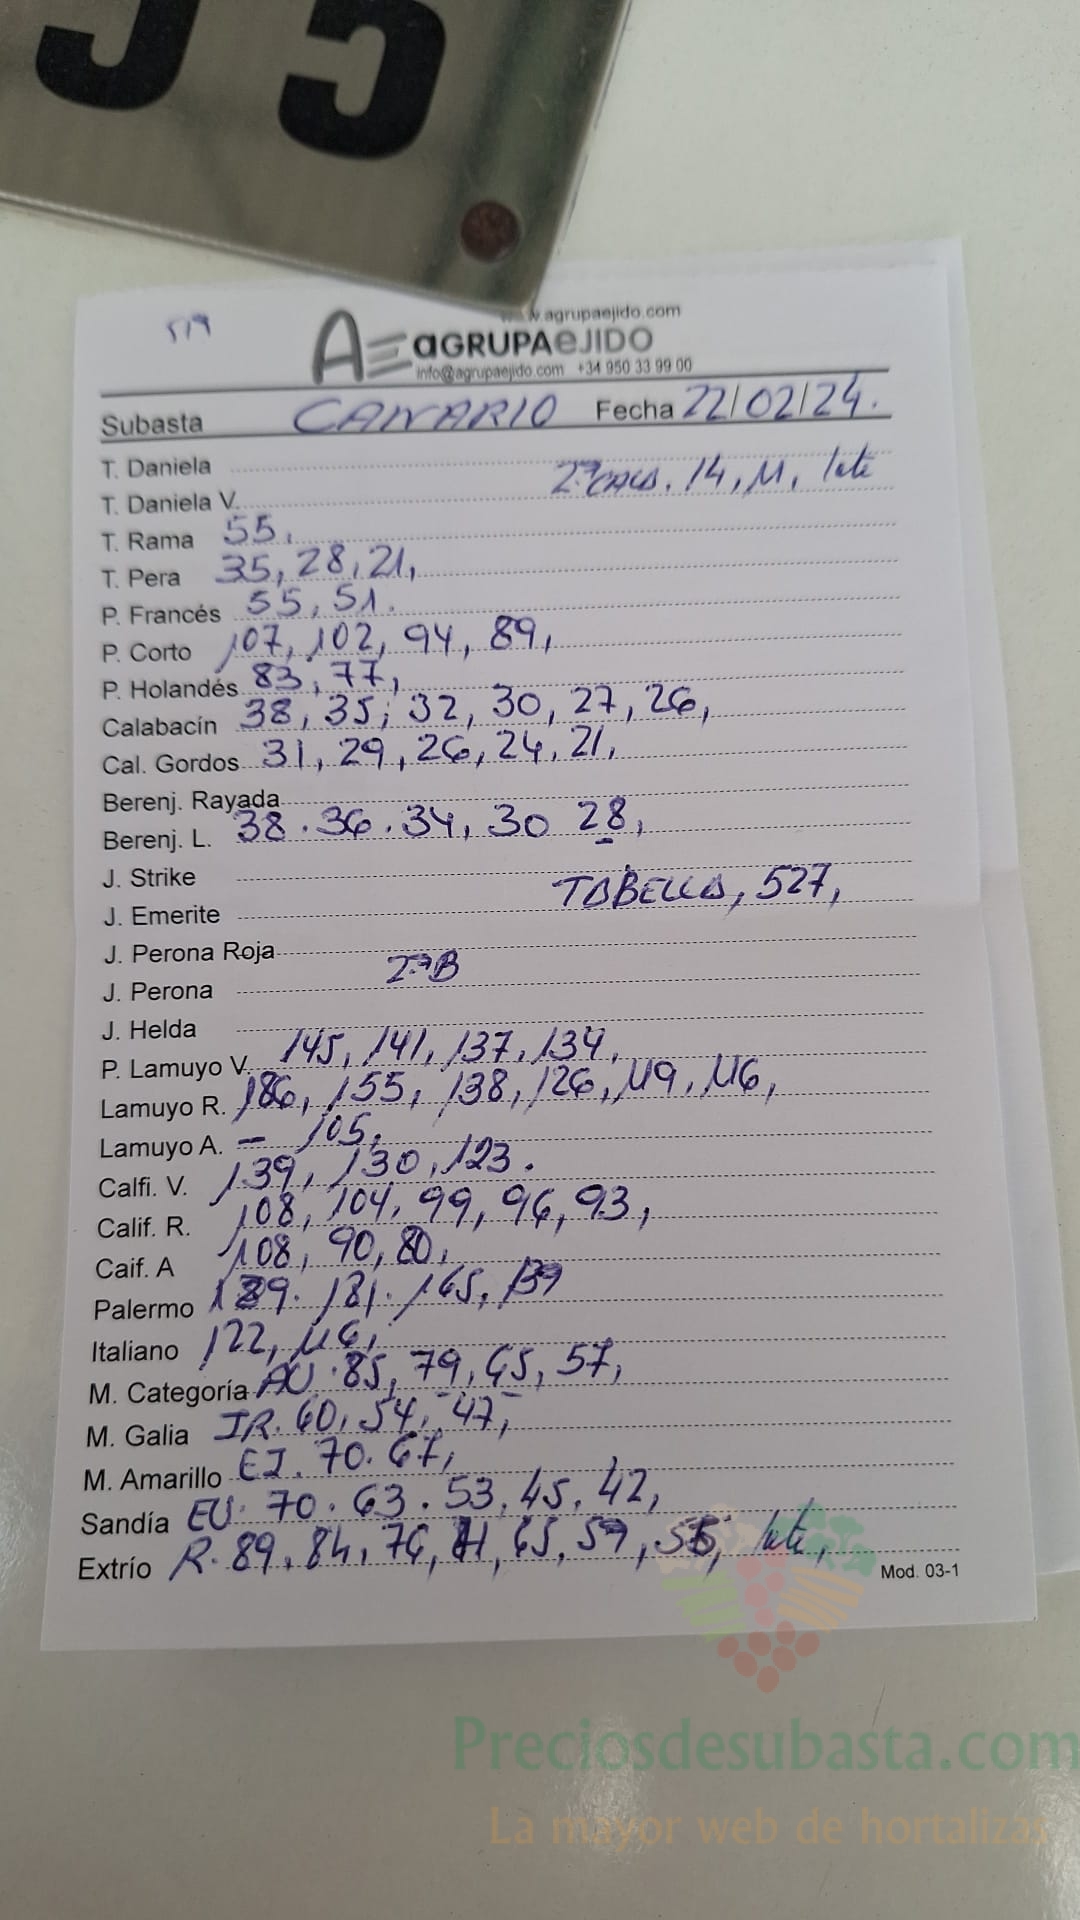 55
519
www.agrupaejido.com
AE aGRUPAeJIDO
info@agrupaejido.com +34 950 33 99 00
Subasta CANARIO Fecha 22/02/24.
T. Daniela
2ª CALA. 14, 11, late
T. Daniela V.
T. Rama 55,
T. Pera 35, 28, 21,
P. Francés 55, 51.
P. Corto 107, 102, 94, 89,
P. Holandés 83, 77,
Calabacín 38, 35, 32, 30, 27, 26,
Cal. Gordos 31, 29, 26, 24, 21,
Berenj. Rayada
Berenj. L. 38. 36. 34, 30 28,
J. Strike
TABELLA, 527,
J. Emerite
J. Perona Roja
2ª B
J. Perona
J. Helda
P. Lamuyo V. 145, 141, 137, 134,
Lamuyo R. 186, 155, 138, 126, 119, 116,
Lamuyo A. - 105,
Calfi. V. 139, 130, 123.
Calif. R. 108, 104, 99, 96, 93,
Caif. A 108, 90, 80,
Palermo 189. 181. 165, 139
Italiano 122, 116,
M. Categoría AU. 85, 79, 65, 57,
M. Galia IR. 60, 54, 47,
M. Amarillo EJ. 70. 67,
Sandía EU. 70. 63. 53, 45, 42,
Extrío R. 89, 84, 76, 71, 65, 59, 55, late,
Mod. 03-1
Preciosdesubasta.com
La mayor web de hortalizas